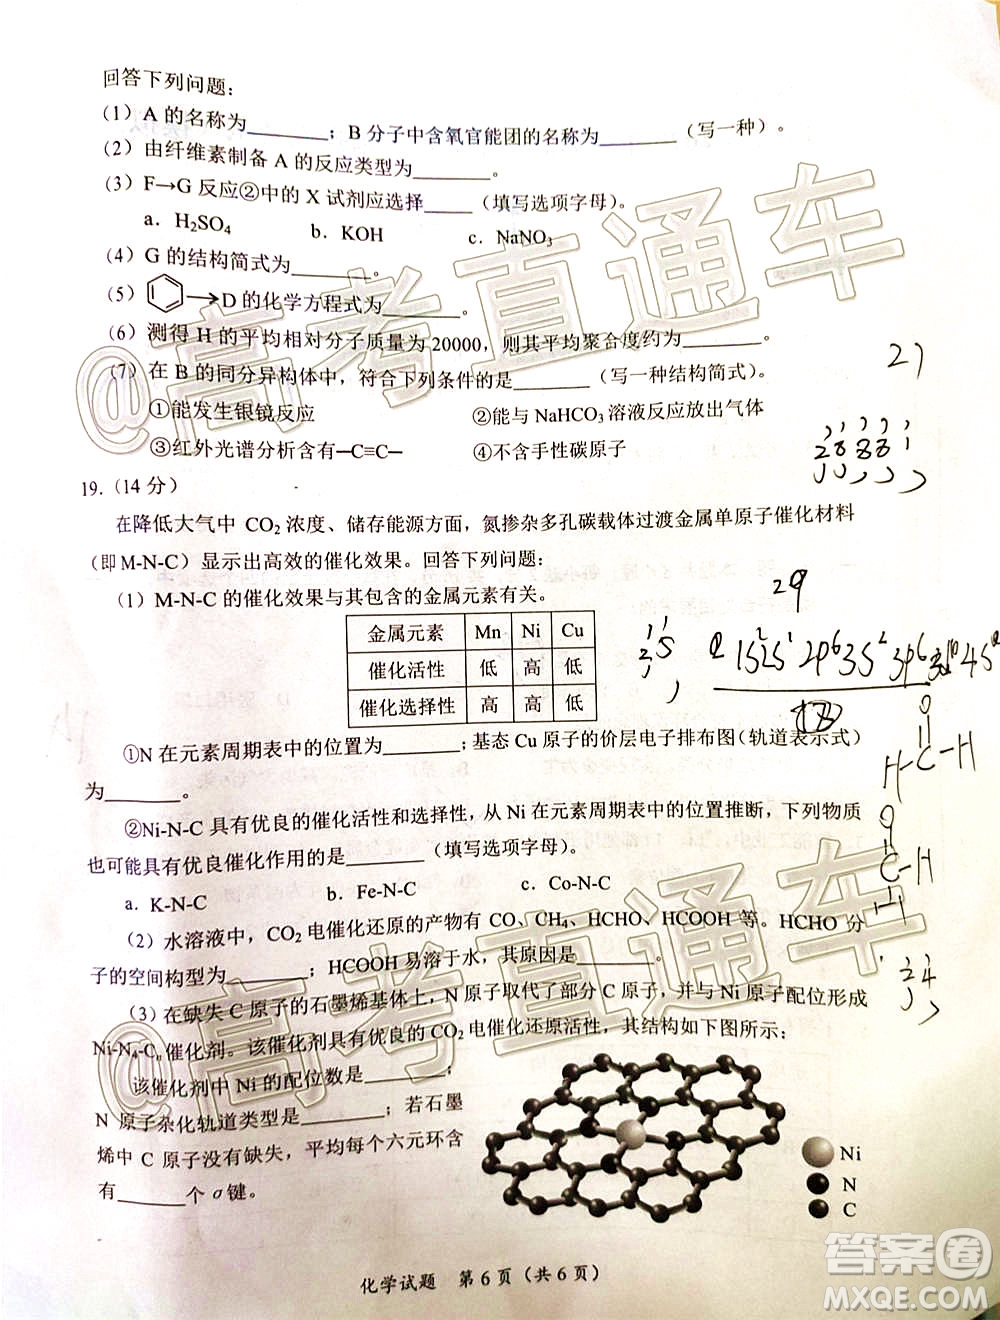 回答下列问题:
(1) A 的名称为________; B 分子中含氧官能团的名称为________(写一种)。
(2) 由纤维素制备 A 的反应类型为________。
(3) F→G 反应②中的 X 试剂应选择_____(填写选项字母)。
a. H₂SO₄ b. KOH c. NaNO₃
(4) G 的结构简式为________。
(5) ⟶D 的化学方程式为________。
(6) 测得 H 的平均相对分子质量为 20000,则其平均聚合度约为________。
(7) 在 B 的同分异构体中,符合下列条件的是________(写一种结构简式)。
①能发生银镜反应 ②能与 NaHCO₃ 溶液反应放出气体
③红外光谱分析含有—C≡C— ④不含手性碳原子
19.(14 分)
在降低大气中 CO₂ 浓度、储存能源方面,氮掺杂多孔碳载体过渡金属单原子催化材料
(即 M-N-C)显示出高效的催化效果。回答下列问题:
(1) M-N-C 的催化效果与其包含的金属元素有关。
金属元素 Mn Ni Cu
催化活性 低 高 低
催化选择性 低 高 高
①N 在元素周期表中的位置为________;基态 Cu 原子的价层电子排布图(轨道表示式)
为________。
②Ni-N-C 具有优良的催化活性和选择性,从 Ni 在元素周期表中的位置推断,下列物质
也可能具有优良催化作用的是________(填写选项字母)。
a. K-N-C b. Fe-N-C c. Co-N-C
(2) 水溶液中,CO₂ 电催化还原的产物有 CO、CH₄、HCHO、HCOOH 等。HCHO 分
子的空间构型为________;HCOOH 易溶于水,其原因是________。
(3) 在缺失 C 原子的石墨烯基体上,N 原子取代了部分 C 原子,并与 Ni 原子配位形成
Ni-N₄-Cₙ 催化剂。该催化剂具有优良的 CO₂ 电催化还原活性,其结构如下图所示:
该催化剂中 Ni 的配位数是________;
N 原子杂化轨道类型是________;若石墨
烯中 C 原子没有缺失,平均每个六元环含
有______个 σ 键。
Ni
N
C
化学试题 第 6 页(共 6 页)
@高考直通车
@高考直通车
答案圈
MXQE.COM
27
29